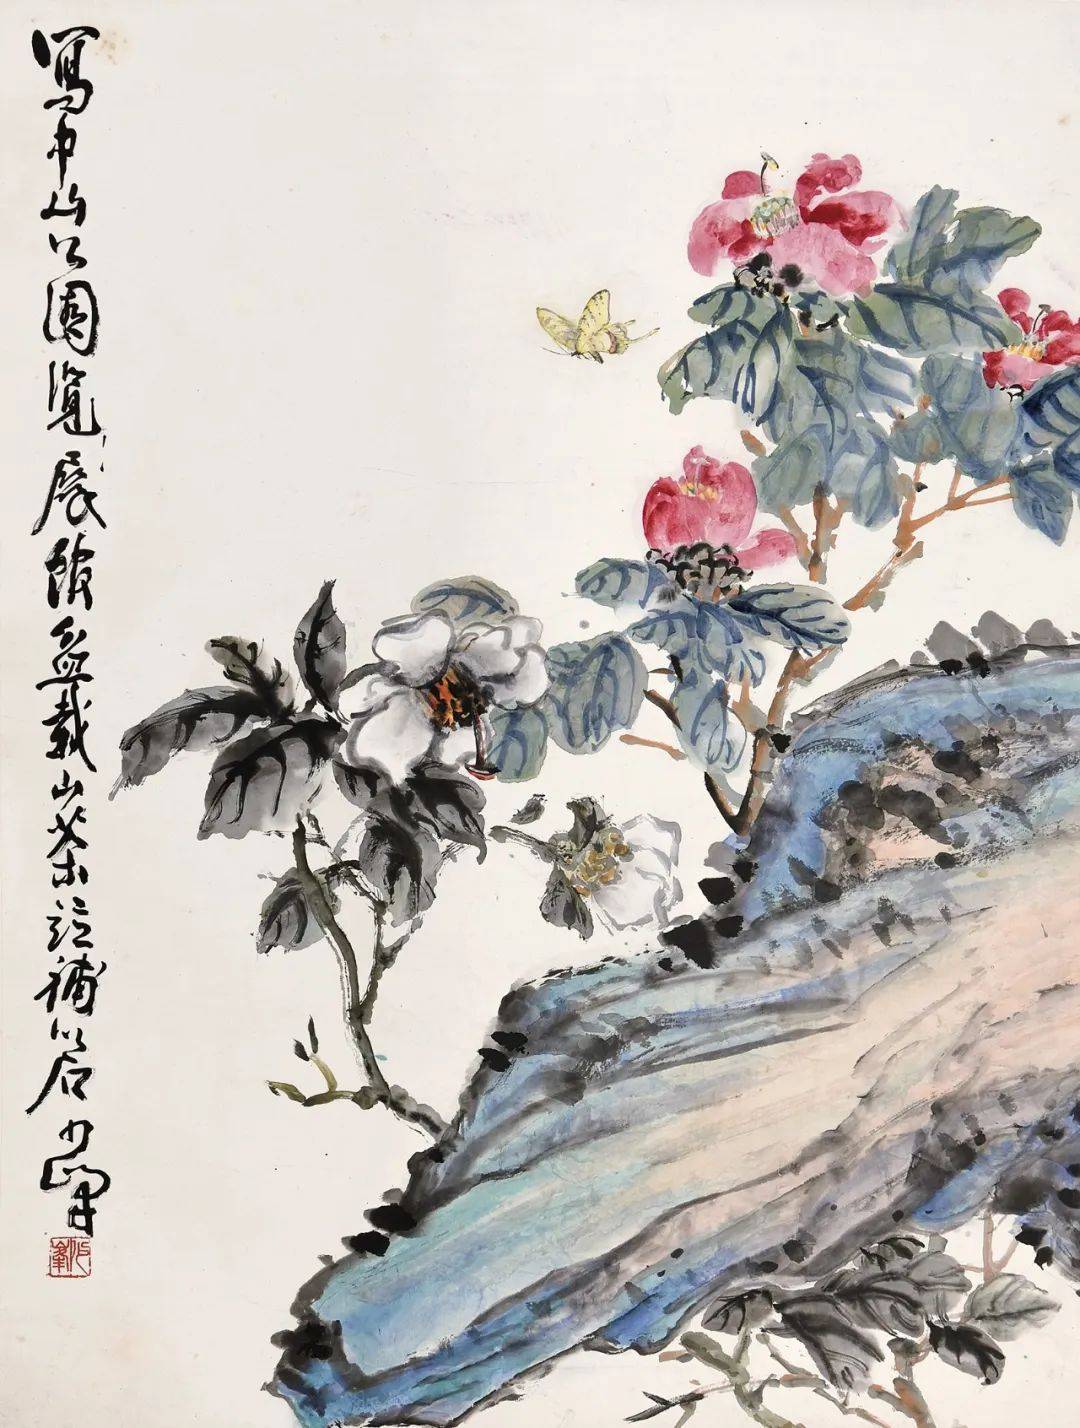 寫中山公園覽展館盆栽山茶並補以石